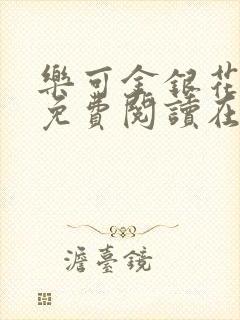 樂可金銀花
免費閱讀在
澹臺鏡